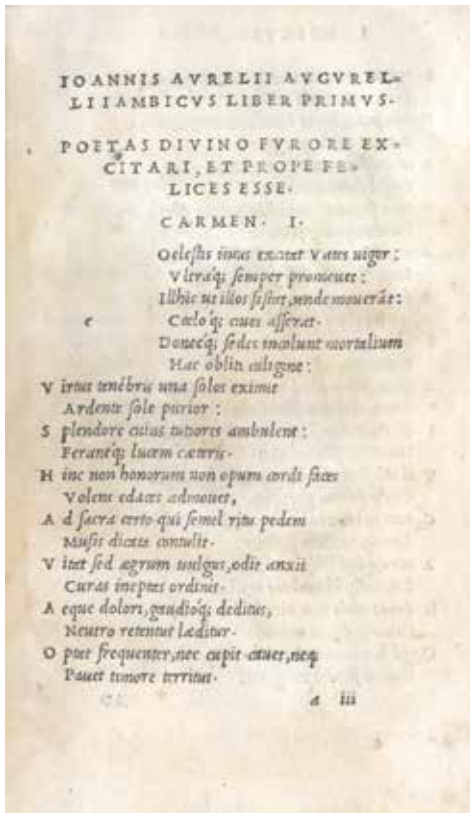 IOANNIS AVRELII AVGVREL-
LI IAMBICVS LIBER PRIMVS.
POETAS DIVINO FVRORE EX-
CITARI, ET PROPE FE-
LICES ESSE.
CARMEN. I.
Oelestis intus excitet Vates uigor:
Vltraq; semper promouet:
Illhic ut illos sistat, unde mouerãt:
c
Cœloq; ciues asserat.
Donecq; sedes incolunt mortalium
Hac obliti caligine:
V irtus tenébris una solos eximit
Ardente sole purior:
S plendore cuius tutiores ambulent:
Ferantq; lucem cæteris.
H inc non honorum non opum cordi faces
Volens edaces admouet,
A d sacra certo qui semel ritu pedem
Musis dicata contulit.
V itet sed ægrum uulgus, odit anxii
Curas ineptas ordinis.
A eque dolori, gaudioq; deditus,
Neutro retentus læditur.
O ptet frequenter, nec cupit nec
Pauet timore territus.
a iii